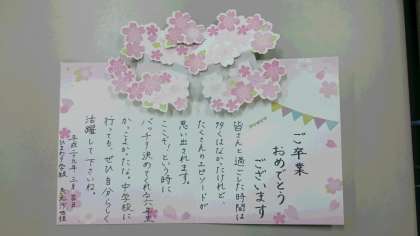 ご卒業
おめでとう
ございます
皆さんと過ごした時間は
多くはなかったけれど
たくさんのエピソードが
思い出されます。
ここぞ！という時に
バッチリ決めてくれる六年生
かっこよかったな。中学校に
行っても、ぜひ自分らしく
活躍して下さいね。
平成二十九年 三月